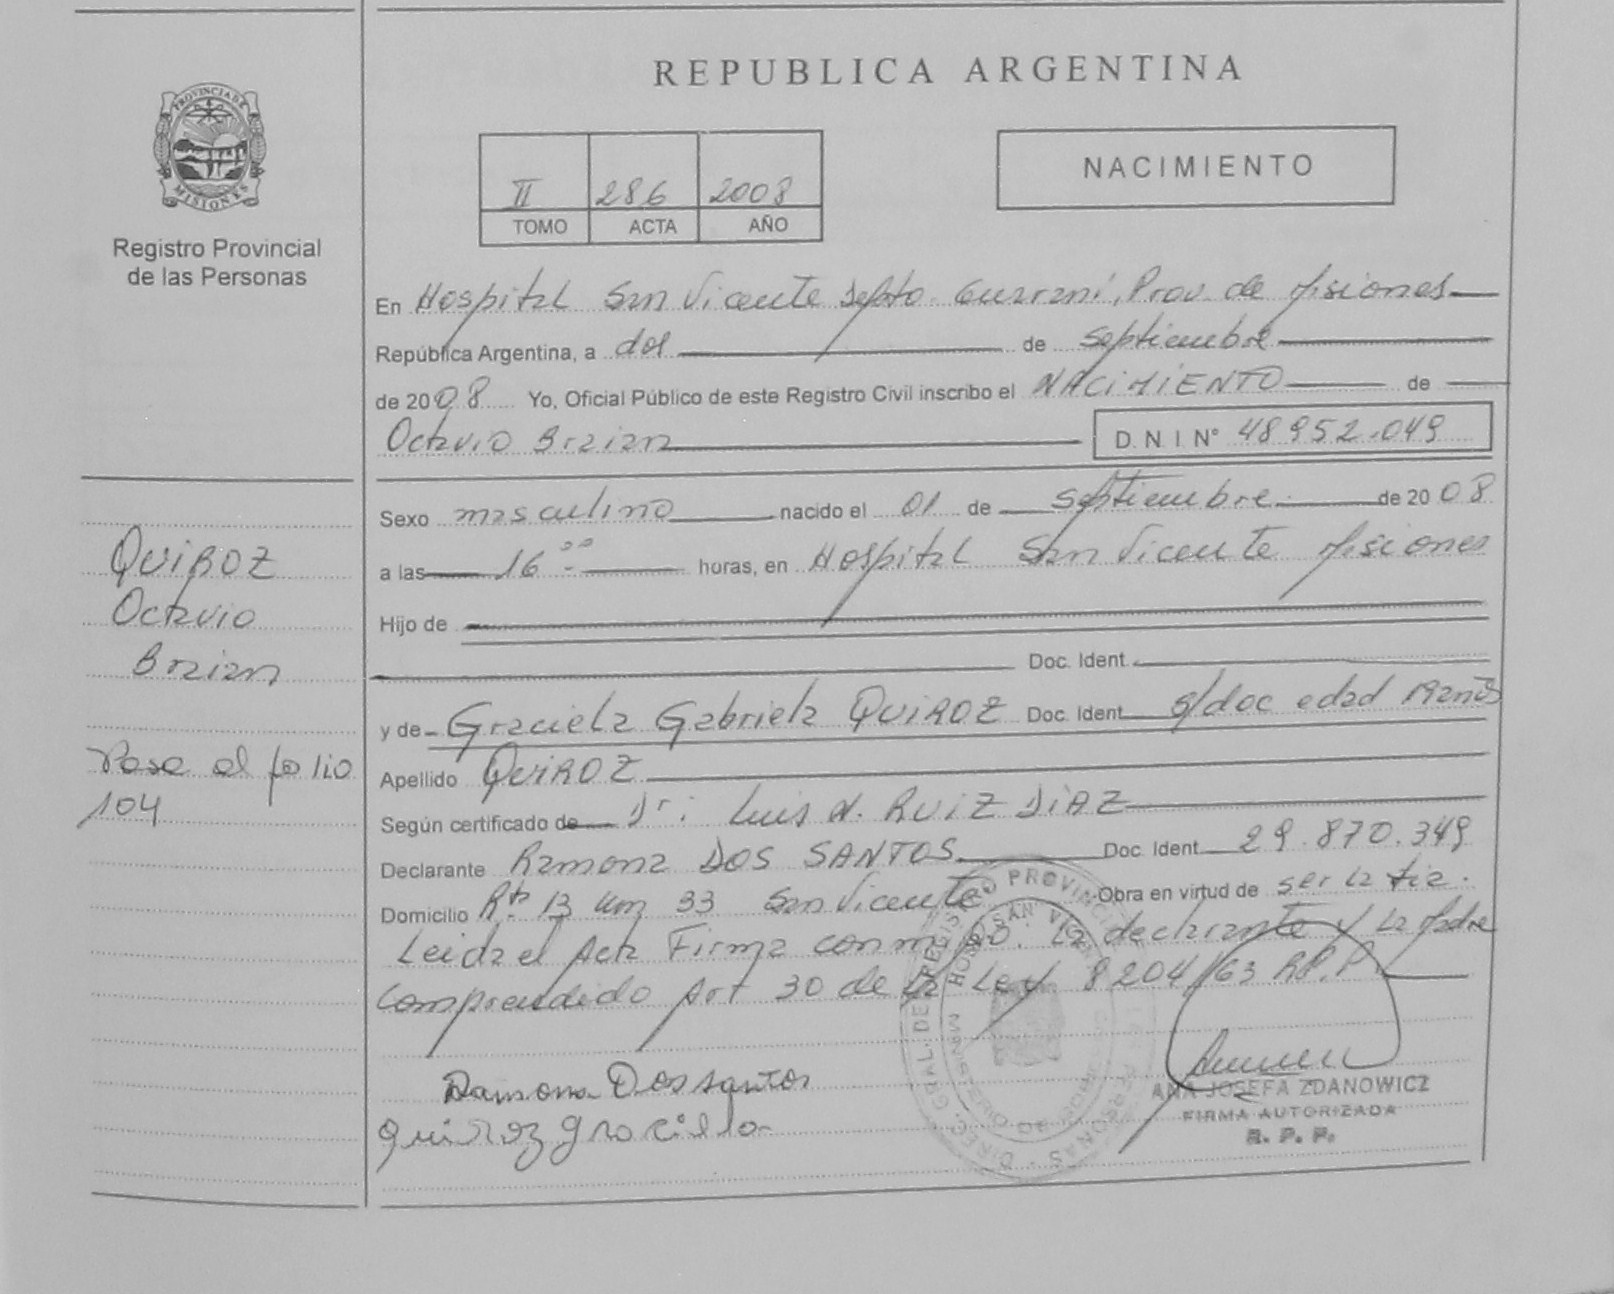 REPUBLICA ARGENTINA
PROVINCIA DE
MISIONES
Registro Provincial
de las Personas
II 286 2008
TOMO ACTA AÑO
NACIMIENTO
En Hospital San Vicente Depto. Guaraní, Prov. de Misiones
República Argentina, a dos de septiembre
de 2008 Yo, Oficial Público de este Registro Civil inscribo el NACIMIENTO de
Octavio Braian D.N.I.Nº 48952.049
Sexo masculino nacido el 01 de septiembre de 2008
a las 16:00 horas, en Hospital San Vicente Misiones
Hijo de
Doc. Ident.
y de Graciela Gabriela QUIROZ Doc. Ident. s/doc edad años
Apellido QUIROZ
Según certificado de Dr: Luis N. RUIZ DIAZ
Declarante Ramona DOS SANTOS Doc. Ident. 29.870.349
Domicilio Rta 13 Km 33 San Vicente Obra en virtud de ser la tia.
Leida el Acta Firma conmigo: la declarante y la Madre
Comprendido Art 30 de la Ley 8204/63 R.P.P.
Ramona Dos santos
Quiroz graciela
ANA JOSEFA ZDANOWICZ
FIRMA AUTORIZADA
R. P. P.
QUIROZ
Octavio
Braian
Pasa al folio
104